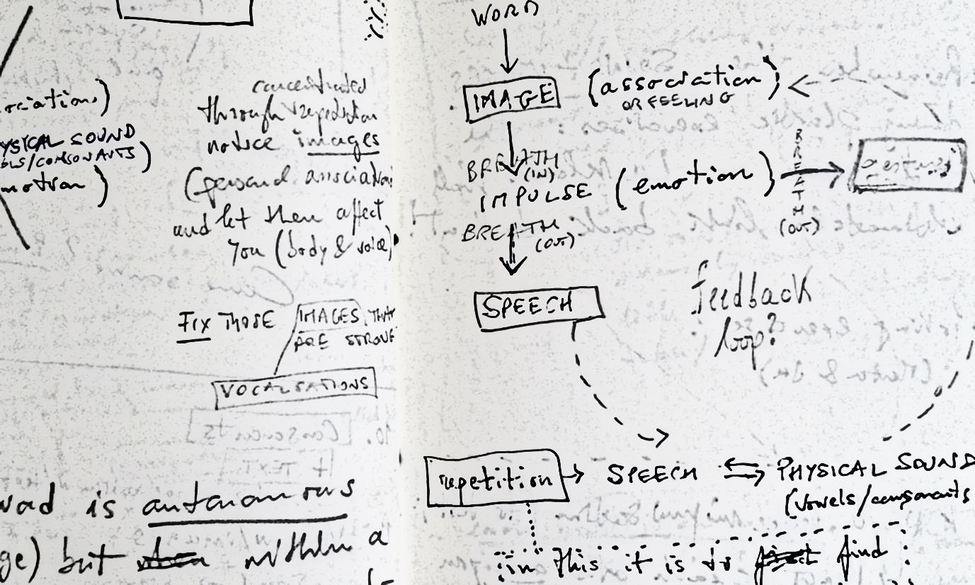 ociations)
PHYSICAL SOUND
(VOWELS/CONSONANTS)
emotion)
concentrated
through repetition
notice images
(personal association
and let them affect
you (body & voice)
FIX THOSE IMAGES THAT
ARE STRONG
VOCALISATIONS
word is autonomous
ge) but within a
WORD
IMAGE (association)
OR FEELING
BREATH
(IN)
IMPULSE (emotion)
BREATH
(OUT)
BREATH
(OUT)
SPEECH
feedback
loop?
repetition → SPEECH ⇄ PHYSICAL SOUND
(vowels/consonants
in this it is to find